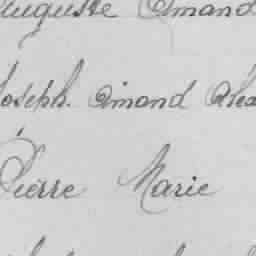 Auguste Amand
Joseph. Amand Alex
Pierre Marie